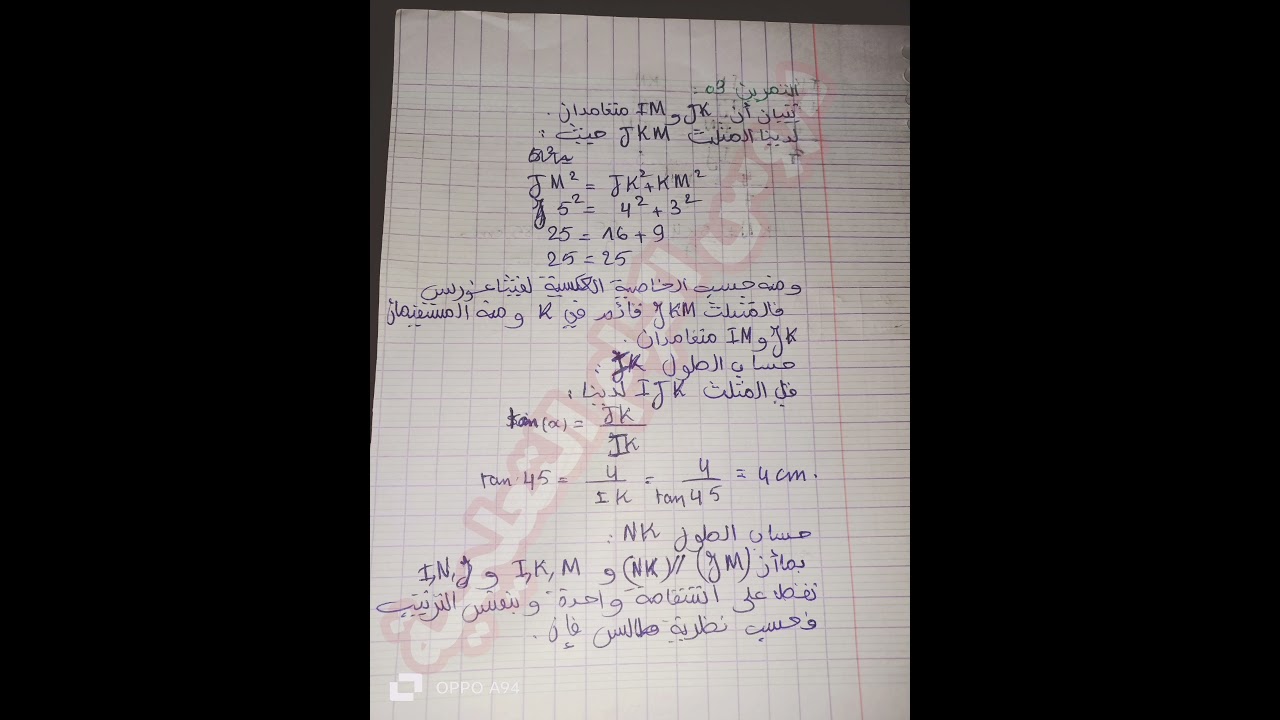 التمرين 03:
تبيان أن JK و IM متعامدان.
لدينا المثلث JKM حيث:
JM² = JK² + KM²
5² = 4² + 3²
25 = 16 + 9
25 = 25
ومنه حسب الخاصة العكسية لفيثاغورس
فالمثلث JKM قائم في K ومنه المستقيمان
JK و IM متعامدان.
حساب الطول IK:
في المثلث IJK لدينا:
tan(α) = JK / IK
tan 45 = 4 / IK = 4 / tan 45 = 4 cm.
حساب الطول NK:
بما أن (JM) // (NK) و I,K,M و I,N,J
نفط على استقامة واحدة وبنفس الترتيب
فحسب نظرية طالس فإن.
OPPO A94